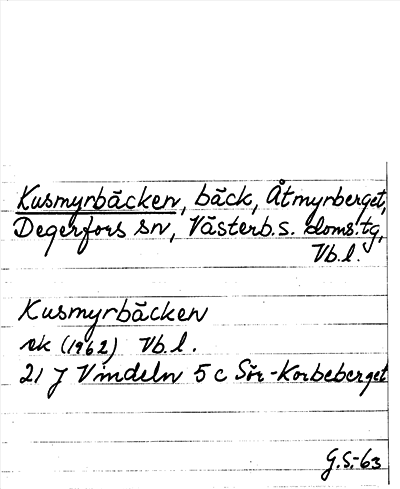 Kusmyrbäcken, bäck, Åtmyrberget,
Degerfors sn, Västerb.s. doms.tg,
Vb.l.
Kusmyrbäcken
ek (1962) Vb.l.
21 J Vindeln 5 c Sör-Korbeberget
G.S.-63